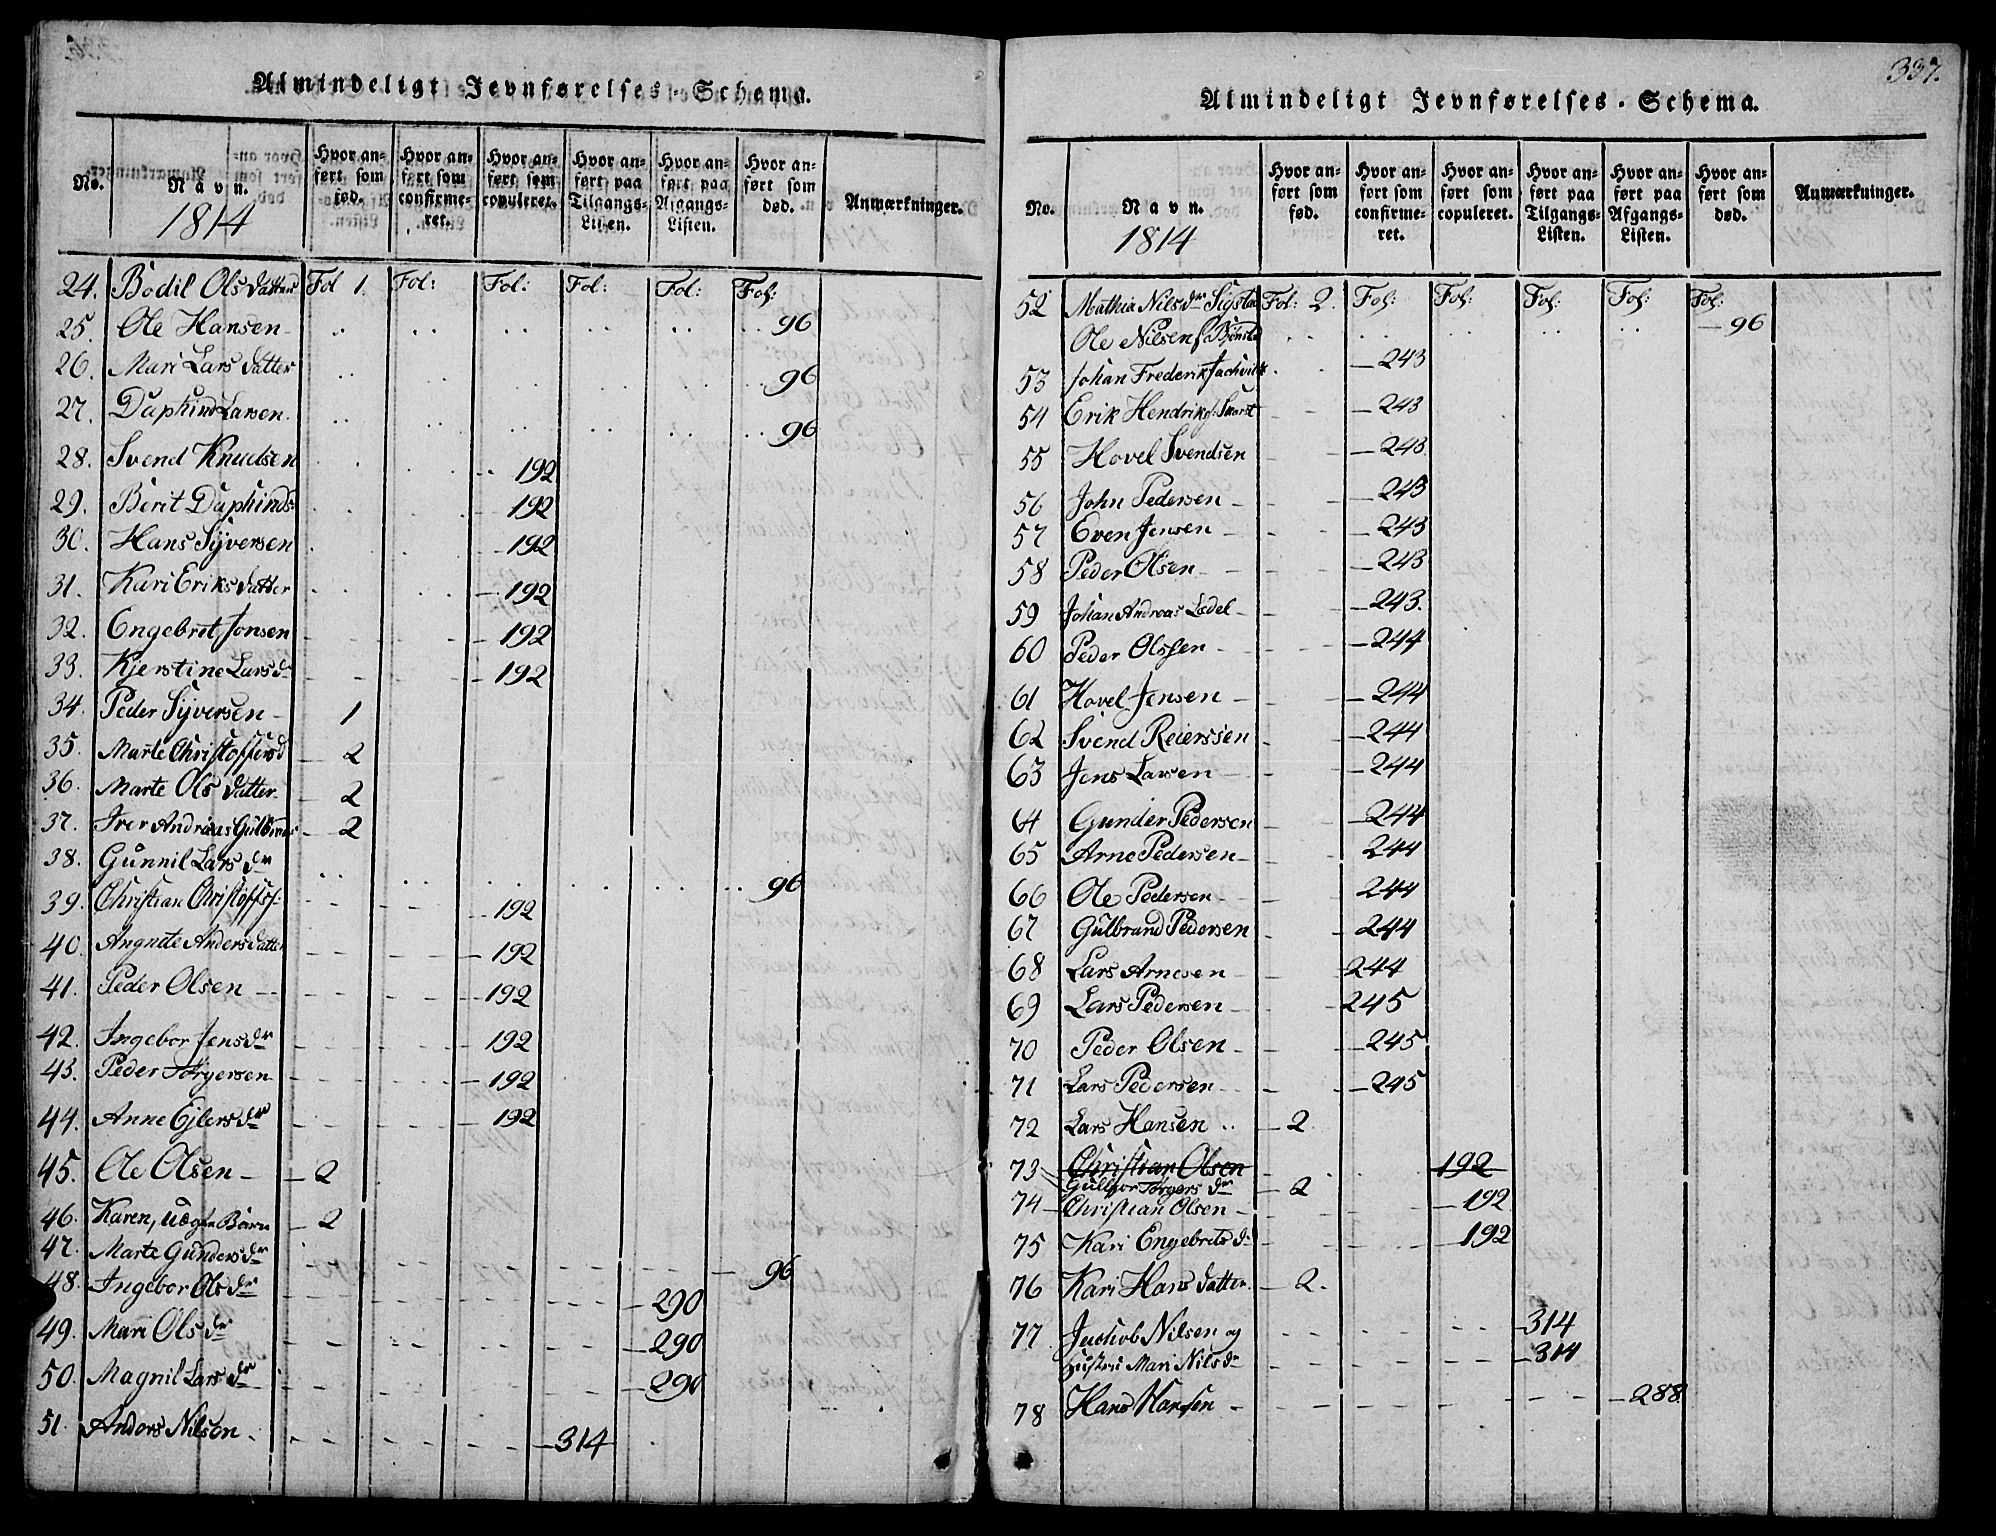 Almindeligt Jevnførelses-Schema.
No. Navn. 1814 Hvor anført som fød. Hvor anført som confirmeret. Hvor anført som copuleret. Hvor anført paa Tilgangs-Listen. Hvor anført paa Afgangs-Listen. Hvor anført som død. Anmærkninger.
24. Bodil Olsdatter Fol 1. Fol: Fol: Fol: Fol: Fol:
25. Ole Hansen 96
26. Mari Lars datter 96
27. Daphind Larsen. 96
28. Svend Knudsen 192
29. Berit Daphinds: 192
30. Hans Syversen 192
31. Kari Eriks datter 192
32. Engebret Jonsen 192
33. Kjerstine Larsdr 192
34. Peder Syversen 1
35. Marte Christoffersd 2
36. Marte Ols datter 2
37. Iver Andreas Gulbrans 2
38. Gunnil Lars dr 96
39. Christian Christoffs: 192
40. Angnete Anders datter 192
41. Peder Olsen 192
42. Ingebor Jensdr 192
43. Peder Torgersen 192
44. Anne Ejlersdr 192
45. Ole Olsen 2
46. Karen, uægte Barn 2
47. Marte Gundersdr 96
48. Ingebor Olsdr 290
49. Mari Olsdr 290
50. Magnil Lars dr 290
51. Anders Nilsen 314
337.
Almindeligt Jevnførelses-Schema.
No. Navn. 1814 Hvor anført som fød. Hvor anført som confirmeret. Hvor anført som copuleret. Hvor anført paa Tilgangs-Listen. Hvor anført paa Afgangs-Listen. Hvor anført som død. Anmærkninger.
52 Mathia Nilsdr Fol: 2. Fol: Fol: Fol: Fol: Fol:
Ole Nilsen 96
53 Johan Frederik 243
54 Erik Hendriks: 243
55 Hovel Svendsen 243
56 John Pedersen 243
57 Even Jensen 243
58 Peder Olsen 243
59 Johan Andreas Ledel 243.
60 Peder Olssen 244
61 Hovel Jensen 244
62 Svend Reierssen 244
63 Jens Larsen 244
64 Gunder Pedersen 244
65 Arne Pedersen 244
66 Ole Pedersen 244
67 Gulbrand Pedersen 244
68 Lars Arnesen 244
69 Lars Pedersen 245
70 Peder Olsen 245
71 Lars Pedersen 245
72 Lars Hansen 2
73 Christian Olsen 192
Gulbor Torgers dr 2
74 Christian Olsen 192
75 Kari Engebrets dr 192
76 Kari Hans datter 2.
77 Jachob Nilsen og 314
Hustrue Mari Nilsdr 314
78 Hans Hansen 288.